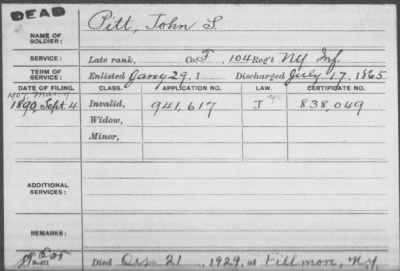 DEAD
NAME OF SOLDIER: Pitt, John S.
SERVICE: Late rank, Co. F, 104 Reg't NY Inf.
TERM OF SERVICE: Enlisted Jany 29, 1 Discharged July 17, 1865
DATE OF FILING. CLASS. APPLICATION NO. LAW. CERTIFICATE NO.
1890, Sept. 4 Invalid, 941,617 J 838,049
Widow,
Minor,
ADDITIONAL SERVICES:
REMARKS:
Died 21, 1929, at Fillmon, N.Y.